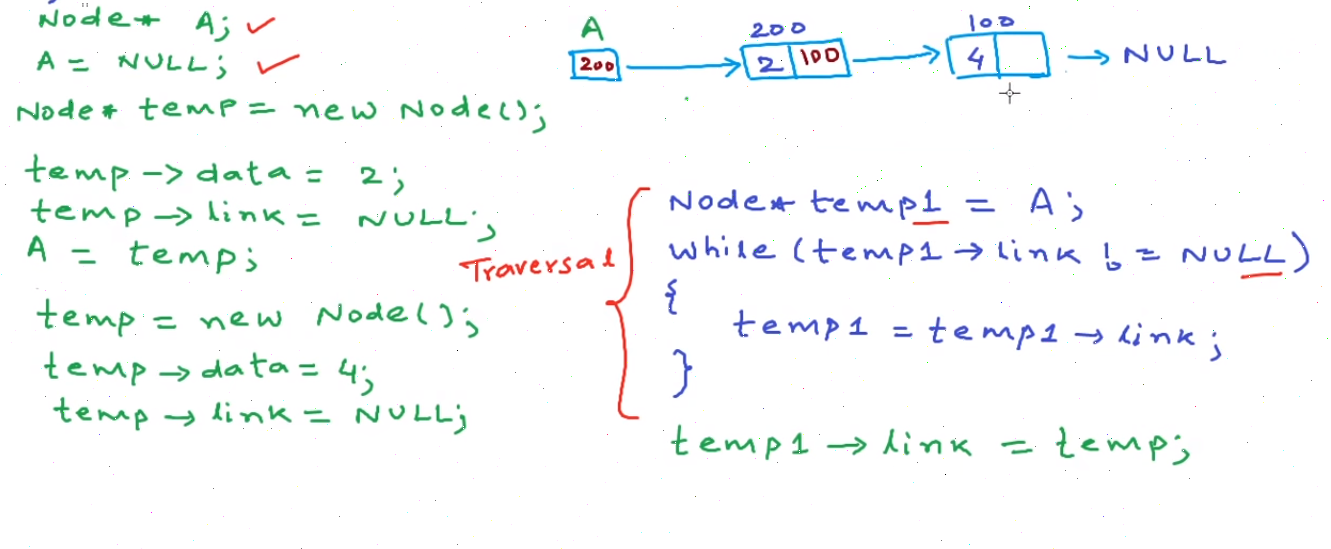 Node* A;
A = NULL;
Node* temp = new Node();
temp -> data = 2;
temp -> link = NULL;
A = temp;
temp = new Node();
temp -> data = 4;
temp -> link = NULL;
A
200
200
2 100
100
4
NULL
Traversal
Node* temp1 = A;
while (temp1 -> link != NULL)
{
temp1 = temp1 -> link;
}
temp1 -> link = temp;